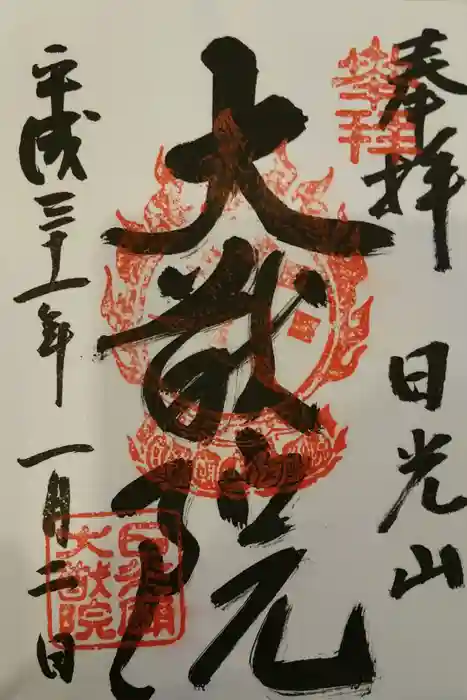 奉拝
日光山
大猷院
平成三十一年
一月二日
大猷院